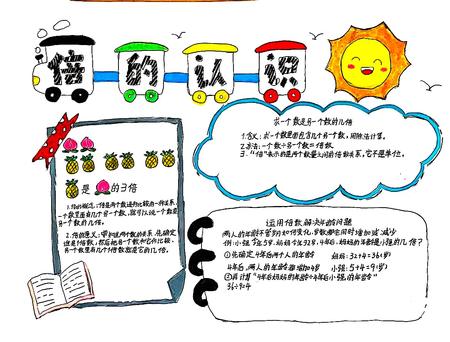 倍的认识
求一个数是另一个数的几倍
1.含义:求一个数里面包含几个另一个数,用除法计算。
2.方法:一个数÷另一个数=倍数
3."倍"表示的是两个数量之间的倍数关系,它不是单位。
是 的3倍
1.倍的概念:倍是两个数进行比较的一种关系,
一个数里面有几个另一个数,就可以说一个数是
另一个数的几倍。
2.倍的意义:
这是1倍数,然后把另一个数和它作比较,
另一个数里有几个1倍数就是它的几倍。
运用倍数解决年龄问题
两人的年龄不管如何变化,岁数都会同时增加或减少
例:小强今年5岁,妈妈今年32岁,4年后,妈妈的年龄是小强的几倍?
①先确定4年后两个人的年龄 妈妈:32+4=36(岁)
4年后,两人的年龄都增加4岁 小强:5+4=9(岁)
②再计算"4年后妈妈的年龄÷4年后小强的年龄"
36÷9=4